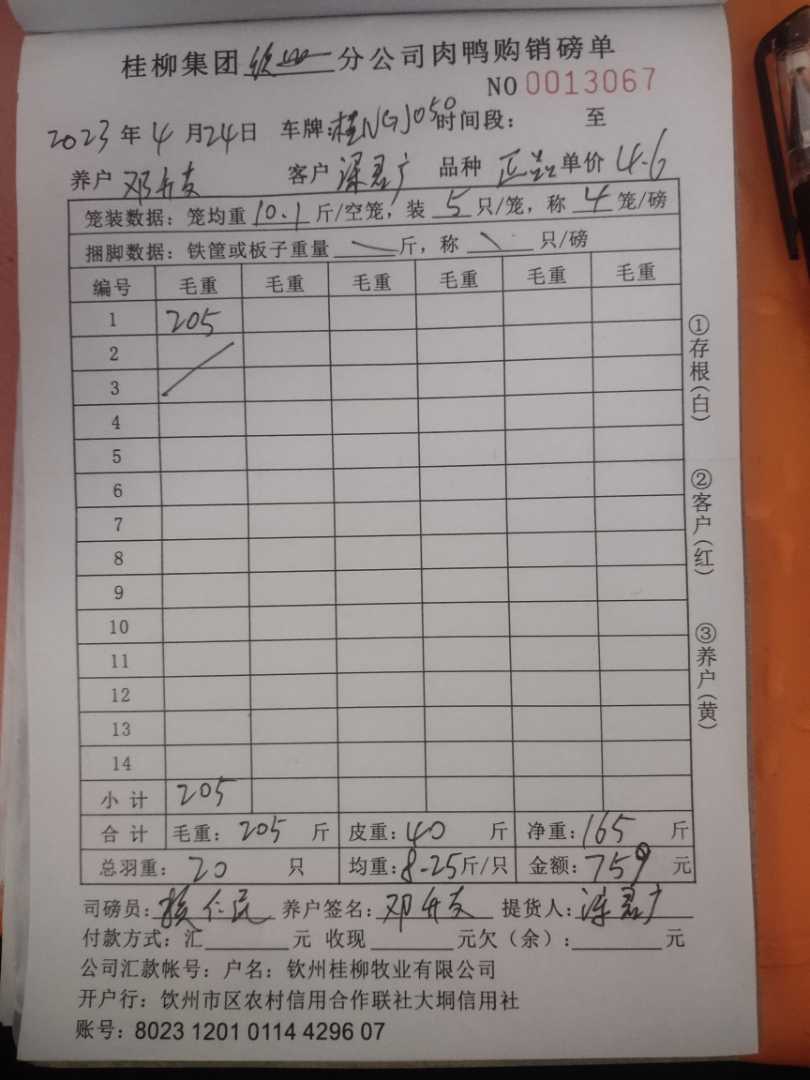 桂柳集团 分公司肉鸭购销磅单
NO 0013067
2023年4月24日 车牌:桂NGJ050 时间段: 至
养户 邓升友 客户 梁君广 品种 正品 单价 4.6
笼装数据:笼均重 10.1 斤/空笼,装 5 只/笼,称 4 笼/磅
捆脚数据:铁筐或板子重量 \ 斤,称 \ 只/磅
编号 毛重 毛重 毛重 毛重 毛重 毛重
1 205
2
3
4
5
6
7
8
9
10
11
12
13
14
小计 205
合计 毛重:205 斤 皮重:40 斤 净重:165 斤
总羽重:20 只 均重:8.25斤/只 金额:759 元
司磅员: 仁民 养户签名:邓升友 提货人:梁君广
付款方式:汇 元 收现 元欠(余): 元
公司汇款帐号:户名:钦州桂柳牧业有限公司
开户行:饮州市区农村信用合作联社大垌信用社
账号:8023 1201 0114 4296 07
①存根(白)
②客户(红)
③养户(黄)